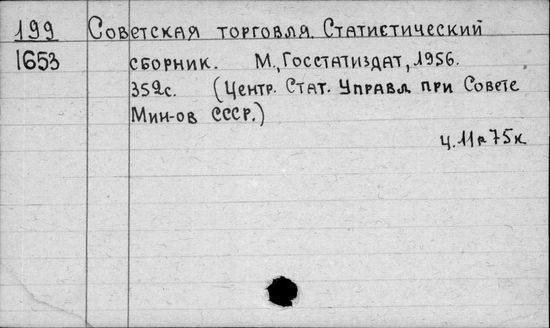 199 Советская торговля. Статистический
1653 сборник. М., Госстатиздат, 1956.
352с. (Центр. Стат. Управл при Совете
Мин-ов СССР.)
ц. 11р 75к